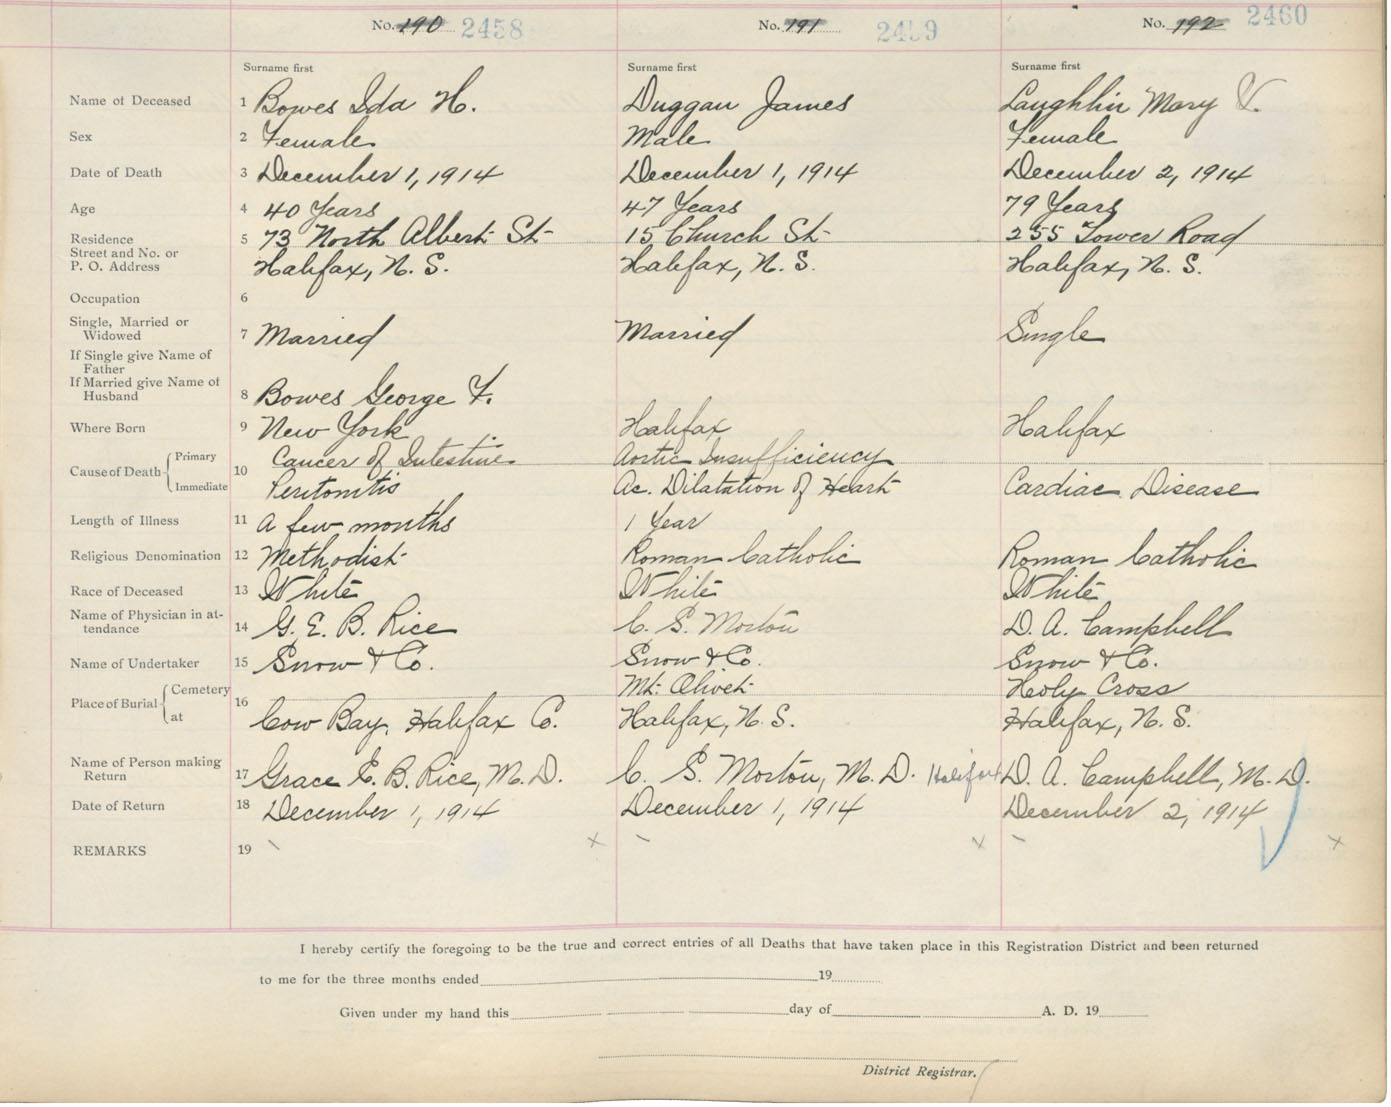 No. 190 2458 No. 191 2459 No. 192 2460
Surname first Surname first Surname first
Name of Deceased 1 Bowes Ida H. Duggan James Laughlin Mary V.
Sex 2 Female Male Female
Date of Death 3 December 1, 1914 December 1, 1914 December 2, 1914
Age 4 40 Years 47 Years 79 Years
Residence 5 73 North Albert St 15 Church St 255 Tower Road
Street and No. or
P. O. Address Halifax, N. S. Halifax, N. S. Halifax, N. S.
Occupation 6
Single, Married or
Widowed 7 Married Married Single
If Single give Name of
Father
If Married give Name of
Husband 8 Bowes George F.
Where Born 9 New York Halifax Halifax
Cause of Death Primary 10 Cancer of Intestine Aortic Insufficiency
Immediate Peritonitis Ac. Dilatation of Heart Cardiac Disease
Length of Illness 11 A few months 1 Year
Religious Denomination 12 Methodist Roman Catholic Roman Catholic
Race of Deceased 13 White White White
Name of Physician in at-
tendance 14 G. E. B. Rice C. S. Morton D. A. Campbell
Name of Undertaker 15 Snow & Co. Snow & Co. Snow & Co.
Place of Burial Cemetery 16 Mt. Olivet Holy Cross
at Cow Bay, Halifax Co. Halifax, N. S. Halifax, N. S.
Name of Person making
Return 17 Grace E. B. Rice, M. D. C. S. Morton, M. D. Halifax D. A. Campbell, M. D.
Date of Return 18 December 1, 1914 December 1, 1914 December 2, 1914
REMARKS 19
I hereby certify the foregoing to be the true and correct entries of all Deaths that have taken place in this Registration District and been returned
to me for the three months ended 19
Given under my hand this day of A. D. 19
District Registrar.